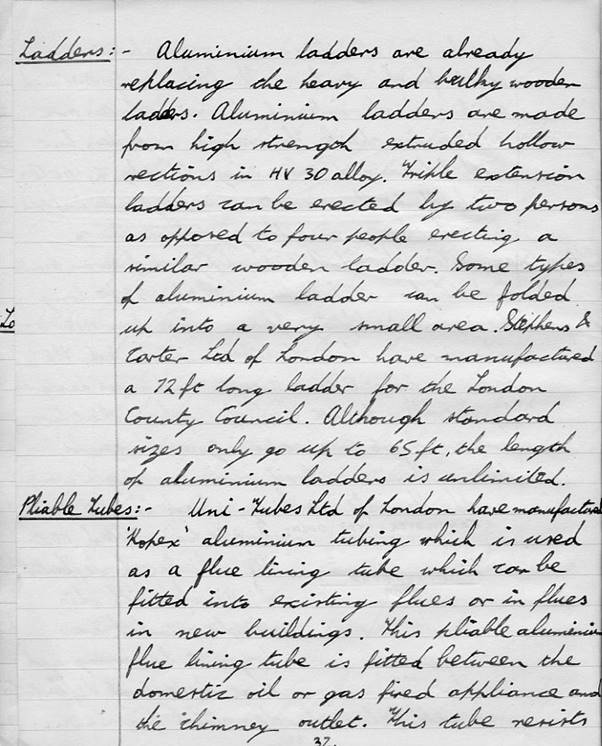 Ladders:- Aluminium ladders are already
replacing the heavy and bulky wooden
ladders. Aluminium ladders are made
from high strength extruded hollow
sections in HV 30 alloy. Triple extension
ladders can be erected by two persons
as opposed to four people erecting a
similar wooden ladder. Some types
of aluminium ladder can be folded
up into a very small area. Stephens &
Carter Ltd of London have manufactured
a 72ft long ladder for the London
County Council. Although standard
sizes only go up to 65ft, the length
of aluminium ladders is unlimited.
Pliable Tubes:- Uni-Tubes Ltd of London have manufactured
'Kopex' aluminium tubing which is used
as a flue lining tube which can be
fitted into existing flues or in flues
in new buildings. This pliable aluminium
flue lining tube is fitted between the
domestic oil or gas fired appliance and
the chimney outlet. This tube resists
37.